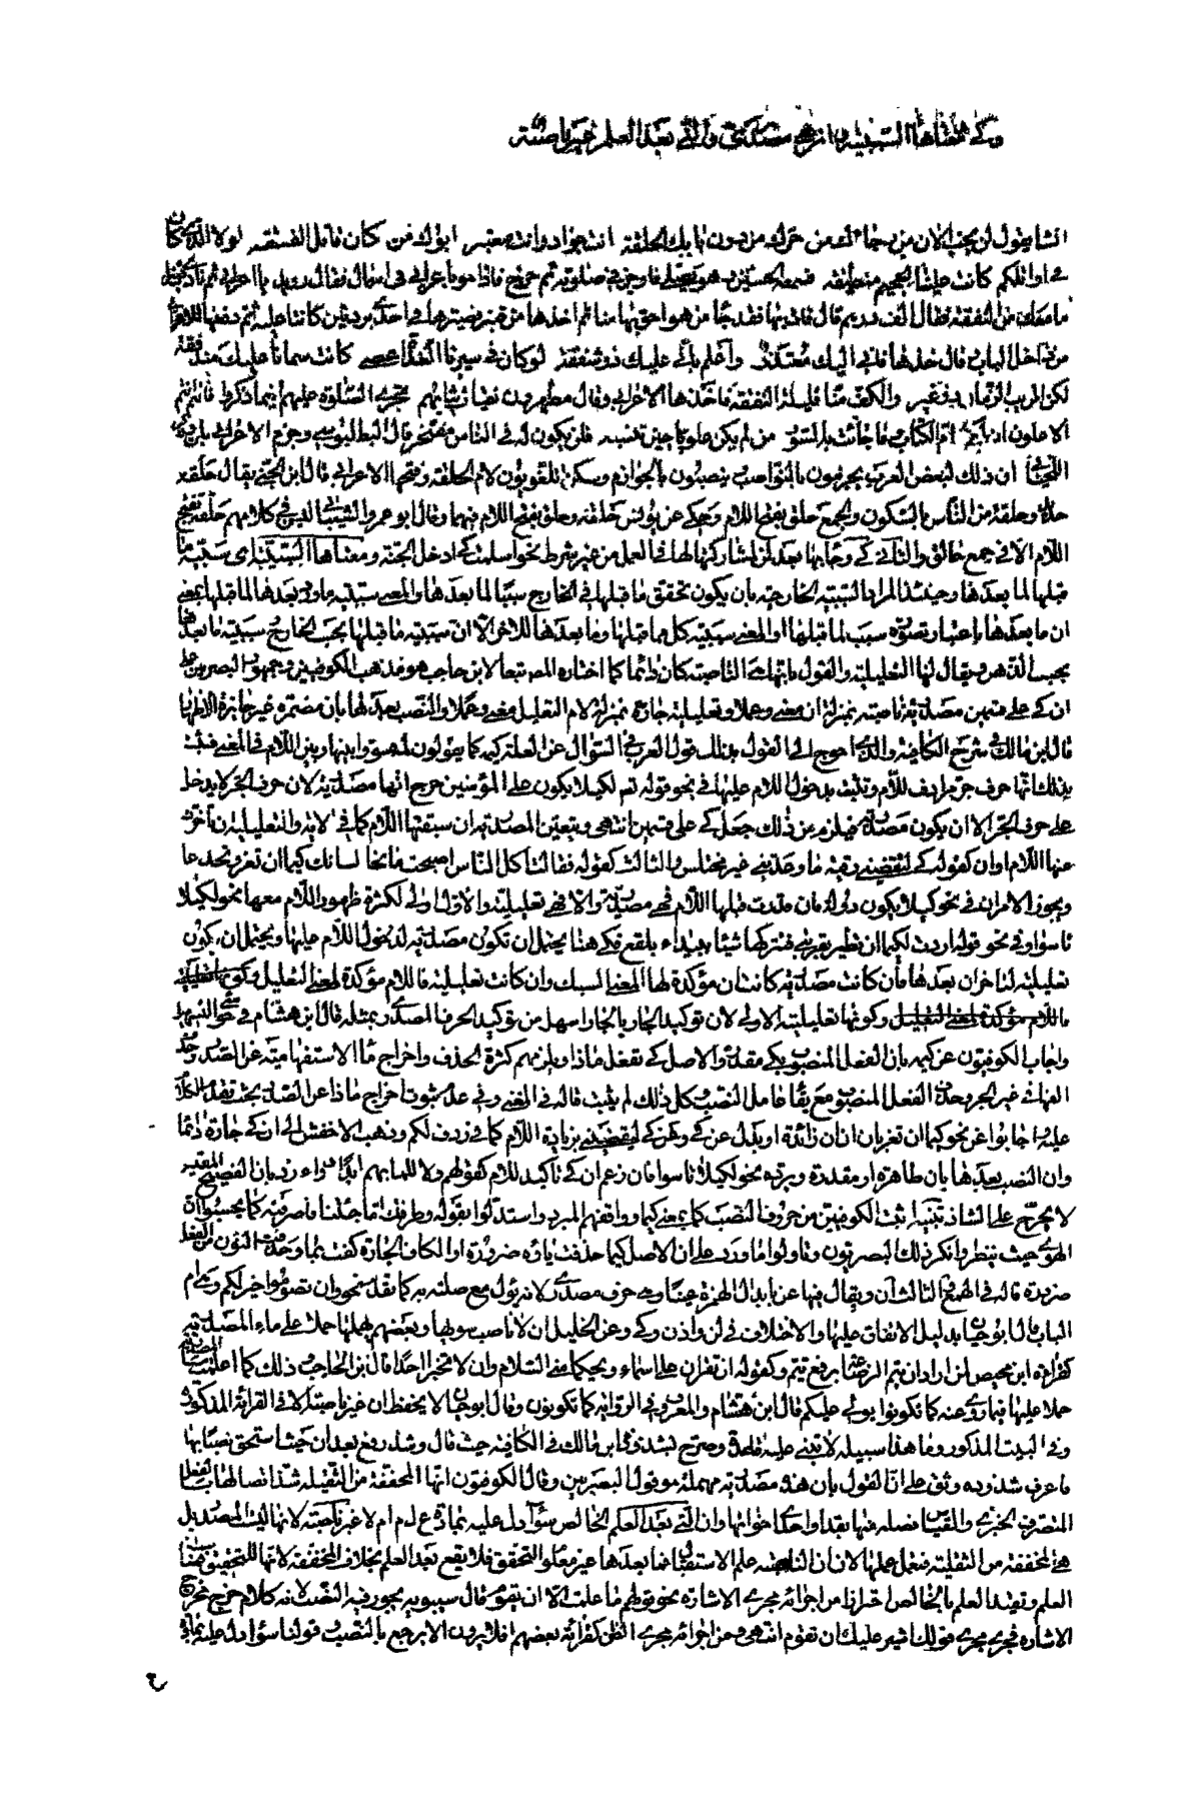 وكي معناها السببية او ان مصدرية والتي بعد العلم غير ناصبة
انشا يقول لن يخب الان من رجاك ومن حرك من دون بابك الحلقة انت جواد وانت معتبر ابوك قد كان قاتل الفسقة لولا الذي كان
في اوائلكم كانت علينا الجحيم منطبقة فسمعه الحسين وهو يصلي فاوجز في صلوته ثم خرج فاذا هو باعرابي في اسمال فقال رويدك يا اعرابي ثم نادى قنبر
ما معك من النفقة فقال الف درهم قال فات بها فقد جاء من هو احق بها منا ثم اخذها من قنبر وصيرها في احدى بردتين كانتا عليه ثم دفعها للاعرابي
من داخل الباب وقال خذها فاني اليك معتذر واعلم باني عليك ذو شفقة لو كان في سيرنا الغداة عصى كانت سمانا عليك مندفقة
لكن ريب الزمان ذو غير والكف منا قليلة النفقة فاخذها الاعرابي وقال مطهرون نقيات ثيابهم تجري الصلوة عليهم اينما ذكروا فانتم انتم
الاعلون عندكم ام الكتاب وما جائت به السور من لم يكن علويا حين تنسبه فلن يكون له في الناس مفتخر قال البطليوسي وجزم الاعرابي بلن وذكر
اللحياني ان ذلك لبعض العرب يجزمون بالنواصب وينصبون بالجوازم وسكن اللغويون لام الحلقة وفتحها الاعرابي قال ابن الجني يقال حلقة
حديد وحلقة من الناس بالسكون والجمع حلق بفتح اللام وحكي عن يونس حلقة وحلق بفتح اللام فيهما وقال ابو عمرو الشيباني ليس في كلامهم حلقة بفتح
اللام الا في جمع حالق والثاني كي وجئ بها بعد لن لمشاركتها لها في العمل من غير شرط نحو اسلمت كي ادخل الجنة ومعناها السببية اى سببية ما
قبلها لما بعدها وحينئذ المراد السببية الخارجية بان يكون تحقق ما قبلها في الخارج سببا لما بعدها والمعنى سببية ما بعدها لما قبلها بمعنى
ان ما بعدها باعتبار تصوره سبب لما قبلها او المعنى سببية كل مما قبلها وما بعدها للاخر الا ان سببية ما قبلها بحسب الخارج وسببية ما بعدها
بحسب الذهن ويقال لها التعليلية والقول بانها هي الناصبة كان دائما كما اختاره المص تبعا لابن حاجب هو مذهب الكوفيين وجمهور البصريين على
ان كي على قسمين مصدرية ناصبة بمنزلة ان معنى وعملا وتعليلية جارة بمنزلة لام التعليل معنى وعملا والنصب بعدها بان مضمرة غير جائزة الاظهار
قال ابن مالك في شرح الكافية والذي احوج الى القول بذلك قول العرب في السؤال عن العلة كيمه كما يقولون لمه وسووا بينها وبين اللام في المعنى فثبت
بذلك انها حرف جر مرادف للام وثبت بدخول اللام عليها في نحو قوله تعالى لكيلا يكون على المؤمنين حرج انها مصدرية لان حرف الجر لا يدخل
على حرف الجر الا ان يكون مصدرية فيلزم من ذلك جعل كي على قسمين انتهى ويتعين المصدرية ان سبقتها اللام كما في الاية والتعليلية ان تأخرت
عنها اللام او ان كقوله كي لتقضيني رقية ما وعدتني غير مختلس والثالث كقوله فقالت اكل الناس اصبحت مانحا لسانك كيما ان تغر وتخدعا
ويجوز الامران في نحو كيلا يكون دولة فان قدرت قبلها اللام فهي مصدرية والا فهي تعليلية والاول اولى لكثرة ظهور اللام معها نحو لكيلا
تاسوا وفي نحو قوله اردت لكيما ان تطير بقربتي فتتركها شنا ببيداء بلقع فكي هنا يحتمل ان تكون مصدرية لدخول اللام عليها ويحتمل ان يكون
تعليلية لتاخر ان بعدها فان كانت مصدرية كانت ان مؤكدة لها لمعنى السبك وان كانت تعليلية فاللام مؤكدة لمعنى التعليل وكونها تعليلية
فاللام مؤكدة لمعنى التعليل وكونها تعليلية الاولى لان توكيد الجار بالجار اسهل من توكيد الحرف المصدري بمثله قال ابن هشام في حواشي التسهيل
واجاب الكوفيون عن كيمه بان الفعل المنصوب بكي مقدر والاصل كي تفعل ماذا ويلزمهم كثرة الحذف واخراج ما الاستفهامية عن الصدر وحذف
الفها في غير الجر وحذف الفعل المنصوب مع بقاء عامل النصب وكل ذلك لم يثبت قاله في المغني وفي عدم ثبوت اخراج ماذا عن الصدر بحث تقدم الكلام
عليه واجابوا عن نحو كيما ان تغر بان ان زائدة او بدل عن كي وعن كي لتقضيني بزيادة اللام كما في ردف لكم وذهب الاخفش الى ان كي جارة دائما
وان النصب بعدها بان ظاهرة او مقدرة ويرده نحو لكيلا تاسوا فان زعم ان كي تاكيد للام كقولهم ولا للما بهم ابدا دواء رد بان الفصيح المقيس
لا يخرج على الشاذ تنبيه اثبت الكوفيون من حروف النصب كما بمعنى كيما ووافقهم المبرد واستدلوا بقوله وطرفك اما جئتنا فاصرفنه كما يحسبوا ان
الهوى حيث تنظر وانكر ذلك البصريون وتاولوا ما ورد على ان الاصل كيما حذفت ياؤه ضرورة او الكاف الجارة كفت بما وحذفت النون من الفعل
ضرورة قاله في الهمع الثالث ان ويقال فيها عن بابدال الهمزة عينا وهي حرف مصدري لانه يؤول مع صلته به كما تقدم نحو وان تصوموا خير لكم وهي ام
الباب قال ابو حيان بدليل الاتفاق عليها والاختلاف في لن واذن وكي وعن الخليل ان لا ناصب سواها وبعضهم يهملها حملا على ماء المصدرية
كقراءة ابن محيصن لمن اراد ان يتم الرضاعة برفع يتم وكقوله ان تقرأن على اسماء ويحكما مني السلام وان لا تخبرا احدا قال ابن الحاجب ذلك كما اعملت ما المصدرية
حملا عليها فيما روي عنه كما تكونوا يولى عليكم قال ابن هشام والمعروف في الرواية كما تكونون وقال ابو حيان لا يحفظ ان غير ناصبة الا في القراءة المذكورة
وفي البيت المذكور وما هذا سبيله لا تبنى عليه قاعدة وصرح بشذوذه ابن مالك في الكافية حيث قال وشذ رفع بعد ان حيث استحق نصبا بها
فاعرف شذوذه وثق على ان القول بان هذه مصدرية مهملة هو قول البصريين وقال الكوفيون انها المخففة من الثقيلة شذ اتصالها بالفعل
المتصرف الخبري والقياس فصله منها بقد او احدى اخواتها وان التي بعد العلم الخالص سواء دل عليه بمادة ع ل م ام لا غير ناصبة لانها ليست المصدرية بل
هي المخففة من الثقيلة فتعمل عملها لان ان الناصبة علم الاستقبال فما بعدها غير معلوم التحقق فلا يقع بعد العلم بخلاف المخففة لانها للتحقيق فيناسب
العلم وتقييد العلم بالخالص احترازا من اجرائه مجرى الاشارة نحو قولهم ما علمت الا ان يقوم قال سيبويه يجوز فيه النصب لانه كلام خرج مخرج
الاشارة فجرى مجرى قولك اشير عليك ان تقوم انتهى ومن اجرائه مجرى الظن كقرائة بعضهم افلا يرون الا يرجع بالنصب وقولنا سواء دل عليه بمادة
ع